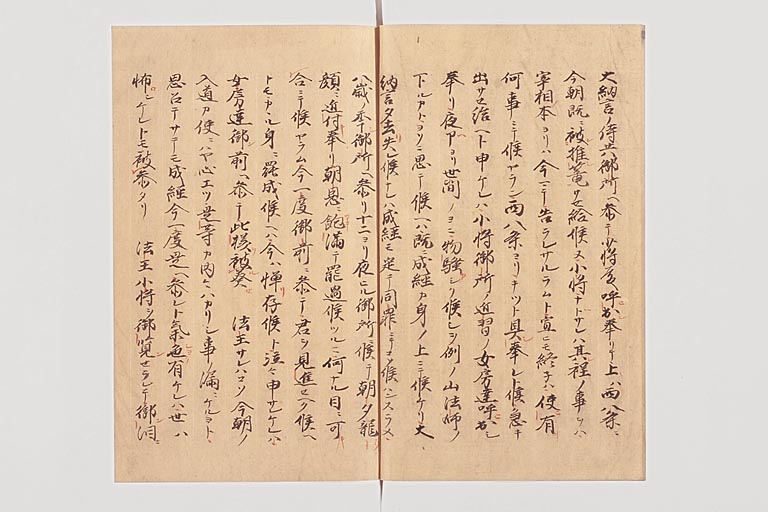 大納言ノ侍共御所ヘ参テ少将殿呼出奉リ上ハ西八条ニ
今朝既ニ被推籠サセ給候ヌ小将ナトサレハ其程ノ事ケレハ
宰相本ヨリハ今ニテ告ラレサルラムト宣ヒモ終子ハ使有
何事ニテ候ヤラン西八条ヨリキツト具奉レト候急キ
出サセ給ヘト申ケレハ小将御所ノ近習ノ女房達呼出シ
奉リ夜アヨリ世間ノヨニ物騒シク候シヲ例ノ山法師ノ
下ルカナトヨソニ思テ候ヘハ既ニ成経カ身ノ上ニテ候ケリ大
納言夕去失レ候ナレハ成経モ定テ同罪ニテコソ候ハンスラメ
八歳ノ年御所ヘ参リ十二ヨリ夜ヒル御所ニ候テ朝夕龍
顔ニ近付奉リ朝恩ニ飽満テ罷過候ツルニ何ナル目ニ可
合ニテ候ヤラム今一度御前ニ参テ君ヲ見進セヘク候ヘ
トモカヽル身ニ罷成候ヘハ今ハ憚存候ト泣々申サレケレハ
女房達御前ヘ参テ此様被奏 法王サレハコソ今朝ノ
入道カ使ニハヤ心エツ是等カ内々ハカリシ事ノ漏ニケルヨト
思召テサテモ成経今一度是ヘ参レト氣色有ケレハ世ハ
怖シケレトモ被参タリ 法王小将ヲ御覧セラレテ御泪ニ